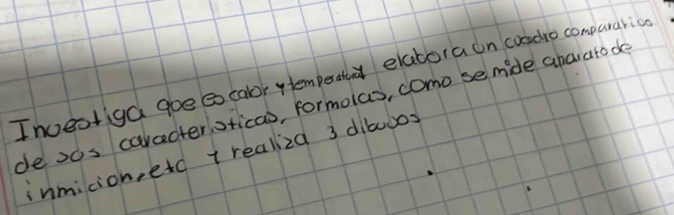 Investiga que es calor y temperatura elabora un cuadro comparativo
de sus caracteristicas, formolas, como se mide aparato de
inmicion, etc y realiza 3 dibujos